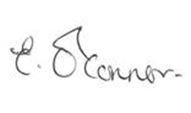 E. O'Connor.